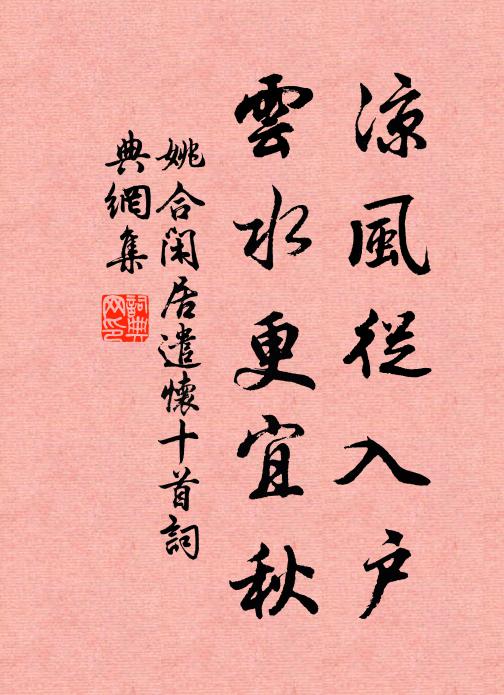 凉風從入户
雲水更宜秋
姚合閑居遣懷十首詞
典網集
詞典
网印